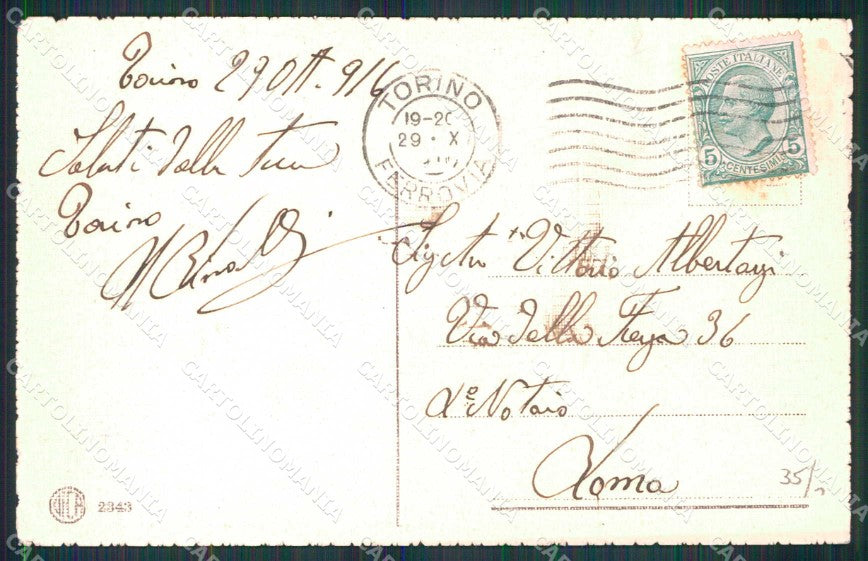 Torino 29 Ott. 916
Saluti dalla tua
Torino
TORINO
19-20
29 X
FERROVIA
POSTE ITALIANE
5 5
CENTESIMI
Vittorio Albertazzi
Via della Freza 36
Notaio
Roma
35/
2343
CARTOLINOMANIA